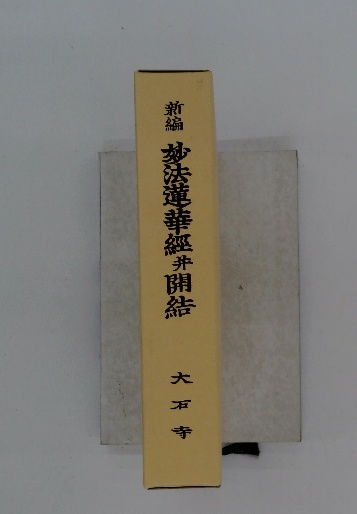 新編
妙法蓮華經并開結
大石寺